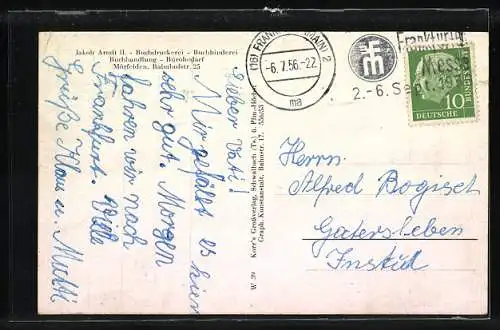 Jakob Arndt II. - Buchdruckerei - Buchbinderei
Buchhandlung - Bürobedarf
Mörfelden, Bahnhofstr. 25
Lieber Vati!
Mir gefällt es hier
sehr gut. Morgen
fahren wir nach
Frankfurt. Viele
Grüße Klaus u. Mutti
Korr's Großverlag, Schwalbach (Ts.) u. Ffm.-Höchst
Graph. Kunstanstalt, Bahnstr. 17.
W 39
(16) FRANKFURT (MAIN) 2
-6.7.56.-22
ma
Frankfurter
Messe
2.-6. Sept.
10
DEUTSCHE BUNDESPOST
Herrn
Alfred Bogisch
Gatersleben
Institut